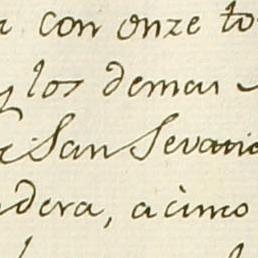 con onze to
y los demas
San Sevas
dera, acimo